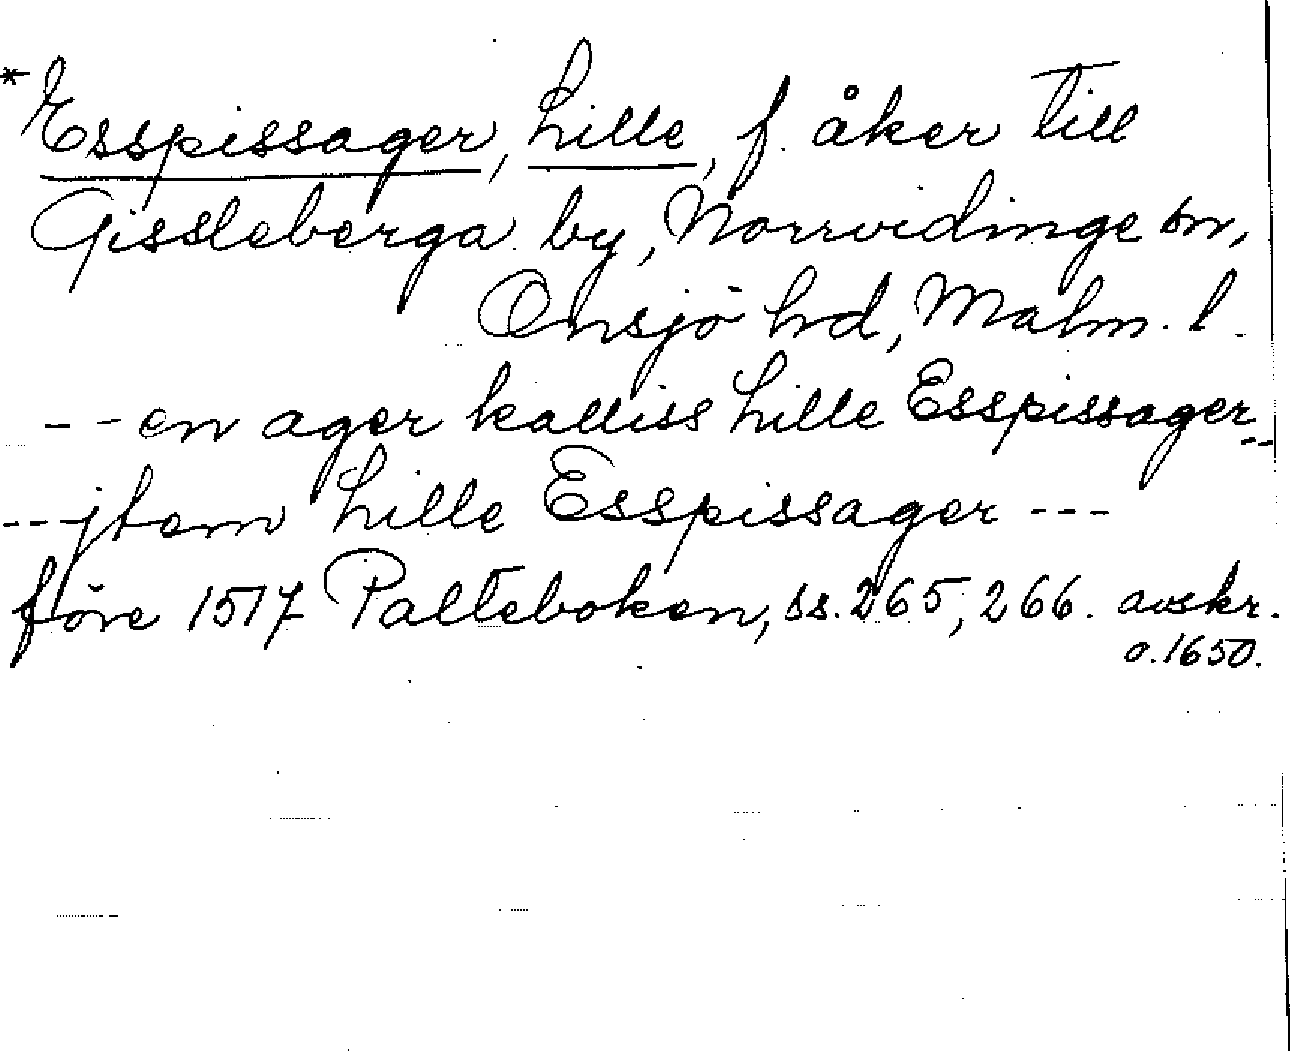 *Esspissager, Lille, f. åker till
Gissleberga by, Norrvidinge sn,
Onsjö hd, Malm. l.
-- en ager kalliss Lille Esspissager --
-- jtem Lille Esspissager ---
före 1517 Palteboken, ss. 265, 266. avskr.
o. 1650.